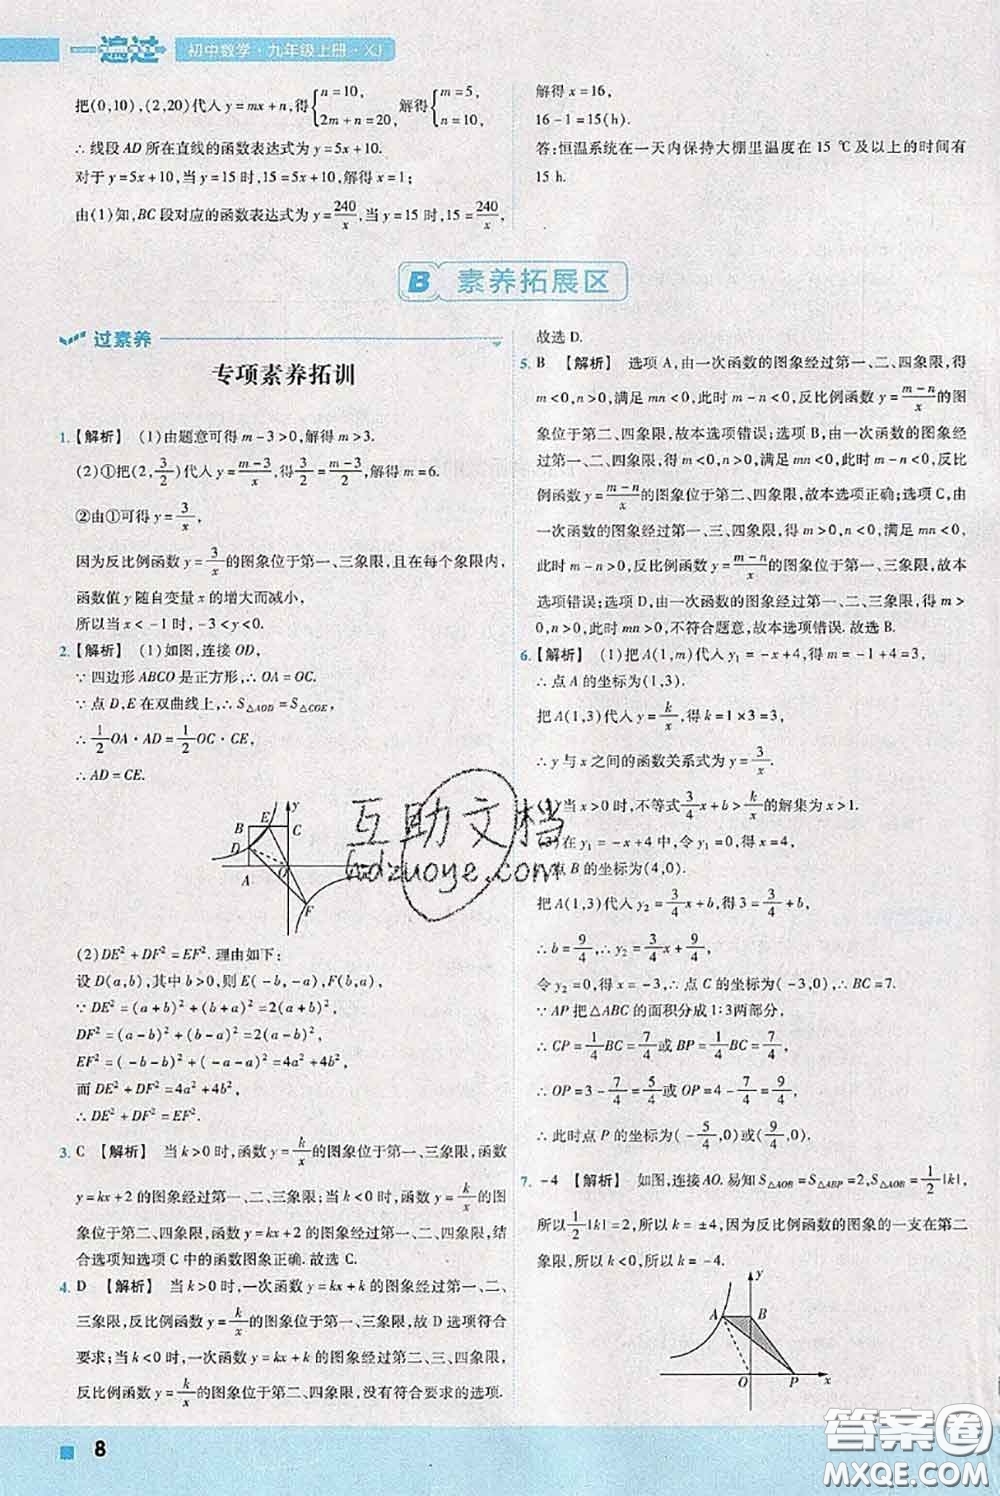 一遍过 初中数学·九年级上册·XJ
把(0,10),(2,20)代入 y=mx+n,得{n=10, 2m+n=20, 解得{m=5, n=10,
∴线段 AD 所在直线的函数表达式为 y=5x+10.
对于 y=5x+10,当 y=15 时,15=5x+10,解得 x=1;
由(1)知,BC 段对应的函数表达式为 y=240/x,当 y=15 时,15=240/x,
解得 x=16,
16-1=15(h).
答:恒温系统在一天内保持大棚里温度在 15 ℃及以上的时间有
15 h.
B 素养拓展区
过素养
专项素养拓训
1.【解析】 (1)由题意可得 m-3>0,解得 m>3.
(2)①把(2,3/2)代入 y=(m-3)/x,得3/2=(m-3)/2,解得 m=6.
②由①可得 y=3/x,
因为反比例函数 y=3/x的图象位于第一、三象限,且在每个象限内,
函数值 y 随自变量 x 的增大而减小,
所以当 x<-1 时,-3<y<0.
2.【解析】 (1)如图,连接 OD,
∵四边形 ABCO 是正方形,∴OA=OC.
∵点 D,E 在双曲线上,∴S△AOD=S△COE,
∴1/2OA·AD=1/2OC·CE,
∴AD=CE.
y
B E C
D
A O
F
(2)DE²+DF²=EF². 理由如下:
设 D(a,b),其中 b>0,则 E(-b,-a),F(b,a),
∵DE²=(a+b)²+(b+a)²=2(a+b)²,
DF²=(a-b)²+(b-a)²=2(a-b)²,
EF²=(-b-b)²+(-a-a)²=4a²+4b²,
而 DE²+DF²=4a²+4b²,
∴DE²+DF²=EF².
3. C 【解析】 当 k>0 时,函数 y=k/x的图象位于第一、三象限,函数
y=kx+2 的图象经过第一、二、三象限;当 k<0 时,函数 y=k/x的图
象位于第二、四象限,函数 y=kx+2 的图象经过第一、二、四象限,结
合选项知选项 C 中的函数图象正确. 故选 C.
4. D 【解析】 当 k>0 时,一次函数 y=kx+k 的图象经过第一、二、
三象限,反比例函数 y=k/x的图象位于第一、三象限,故 D 选项符合
要求;当 k<0 时,一次函数 y=kx+k 的图象经过第二、三、四象限,
反比例函数 y=k/x的图象位于第二、四象限,没有符合要求的选项.
故选 D.
5. B 【解析】 选项 A,由一次函数的图象经过第一、二、四象限,得
m<0,n>0,满足 mn<0,此时 m-n<0,反比例函数 y=(m-n)/x的图
象位于第二、四象限,故本选项错误;选项 B,由一次函数的图象经
过第一、二、四象限,得 m<0,n>0,满足 mn<0,此时 m-n<0,反比
例函数 y=(m-n)/x的图象位于第二、四象限,故本选项正确;选项 C,由
一次函数的图象经过第一、三、四象限,得 m>0,n<0,满足 mn<0,
此时 m-n>0,反比例函数 y=(m-n)/x的图象位于第一、三象限,故本
选项错误;选项 D,由一次函数的图象经过第一、二、三象限,得 m>
0,n>0,此时 mn>0,不符合题意,故本选项错误. 故选 B.
6.【解析】 (1)把 A(1,m)代入 y₁=-x+4,得 m=-1+4=3,
∴点 A 的坐标为(1,3).
把 A(1,3)代入 y=k/x,得 k=1×3=3,
∴y 与 x 之间的函数关系式为 y=3/x.
当 x>0 时,不等式3/4x+b>k/x的解集为 x>1.
(3)在 y₁=-x+4 中,令 y₁=0,得 x=4,
∴点 B 的坐标为(4,0).
把 A(1,3)代入 y₂=3/4x+b,得 3=3/4+b,
∴b=9/4,∴y₂=3/4x+9/4,
令 y₂=0,得 x=-3,∴点 C 的坐标为(-3,0),∴BC=7.
∵AP 把△ABC 的面积分成 1∶3两部分,
∴CP=1/4BC=7/4或 BP=1/4BC=7/4,
∴OP=3-7/4=5/4或 OP=4-7/4=9/4,
∴此时点 P 的坐标为(-5/4,0)或(9/4,0).
7. -4 【解析】 如图,连接 AO. 易知 S△AOB=S△ABP=2,S△AOB=1/2|k|,
所以1/2|k|=2,所以 k=±4,因为反比例函数的图象的一支在第二
象限,所以 k<0,所以 k=-4.
y
A B
O P x
互助文档
hdzuoye.com
8
答案圈
MXQE.COM